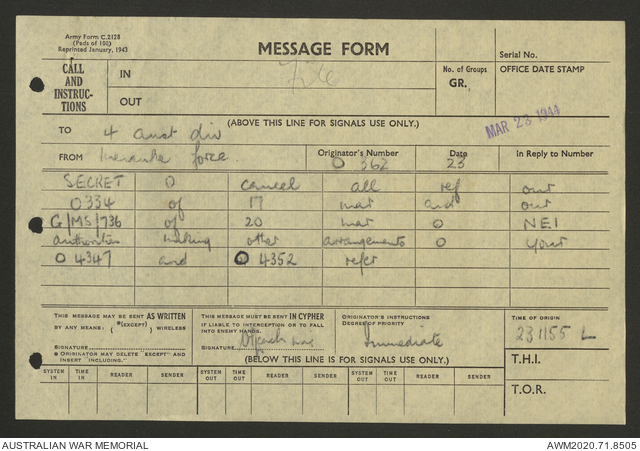 Army Form C.2128
(Pads of 100)
Reprinted January, 1943
MESSAGE FORM
Serial No.
CALL AND INSTRUC-TIONS
IN
File
No. of Groups
GR.
OFFICE DATE STAMP
OUT
MAR 23 1944
(ABOVE THIS LINE FOR SIGNALS USE ONLY.)
TO 4 aust div
FROM merauke force.
Originator's Number
O 362
Date
23
In Reply to Number
SECRET O cancel all ref our
O334 of 17 mar and our
G/MS/736 of 20 mar O NEI
authorities making other arrangements O your
O 4347 and O 4352 refer
THIS MESSAGE MAY BE SENT AS WRITTEN
BY ANY MEANS: (*(EXCEPT) WIRELESS
SIGNATURE
ORIGINATOR MAY DELETE "EXCEPT" AND
INSERT INCLUDING."
THIS MESSAGE MUST BE SENT IN CYPHER
IF LIABLE TO INTERCEPTION OR TO FALL
INTO ENEMY HANDS.
SIGNATURE
ORIGINATOR'S INSTRUCTIONS
DEGREE OF PRIORITY
Immediate
TIME OF ORIGIN
231155 L
(BELOW THIS LINE IS FOR SIGNALS USE ONLY.)
T.H.I.
SYSTEM IN
TIME IN
READER
SENDER
SYSTEM OUT
TIME OUT
READER
SENDER
SYSTEM OUT
TIME OUT
READER
SENDER
T.O.R.
AUSTRALIAN WAR MEMORIAL
AWM2020.71.8505